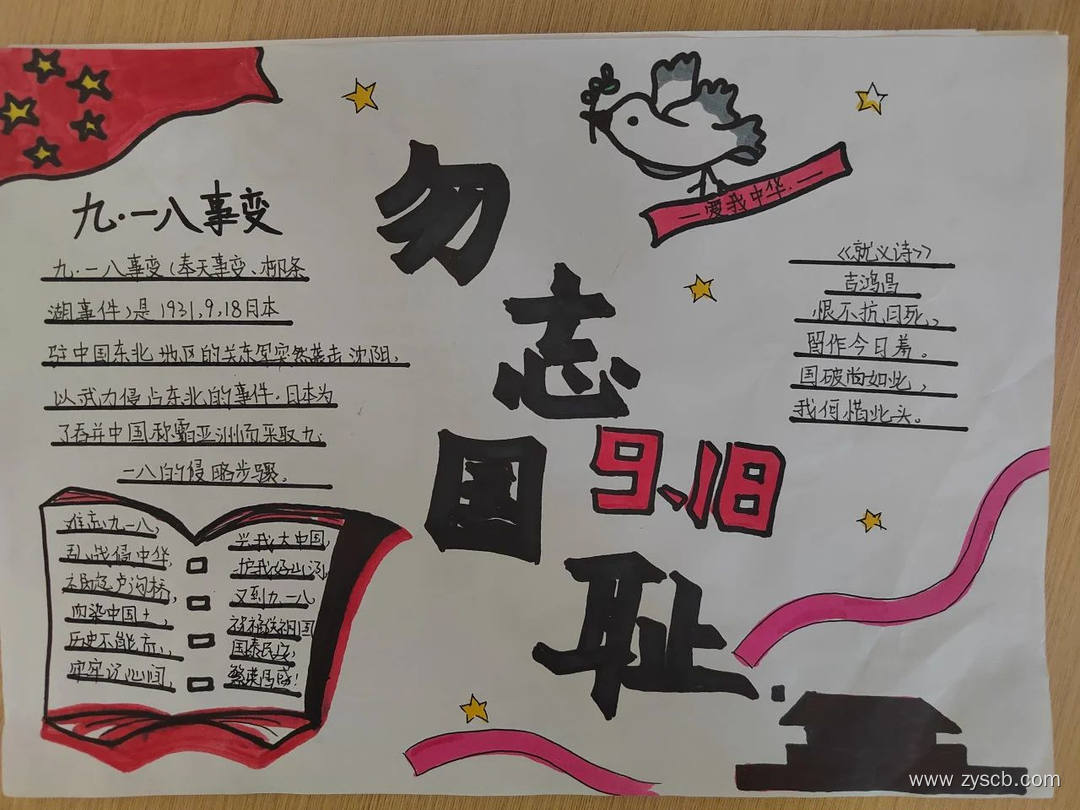 九·一八事变
九·一八事变(奉天事变、柳条
湖事件)是1931,9,18日本
驻中国东北地区的关东军突然袭击沈阳,
以武力侵占东北的事件.日本为
了吞并中国,称霸亚洲而采取九·
一八的侵略步骤。
难忘九一八,
乱战侵中华,
卢沟桥,
血染中国土,
历史不能忘,
牢牢记心间,
兴我大中国,
护我好山河,
又到九一八,
祝福送祖国
国泰民安,
繁荣昌盛!
勿
志
国
耻
9、18
一爱我中华·一
《就义诗》
吉鸿昌
恨不抗日死,
留作今日羞。
国破尚如此,
我何惜此头。
www.zyscb.com